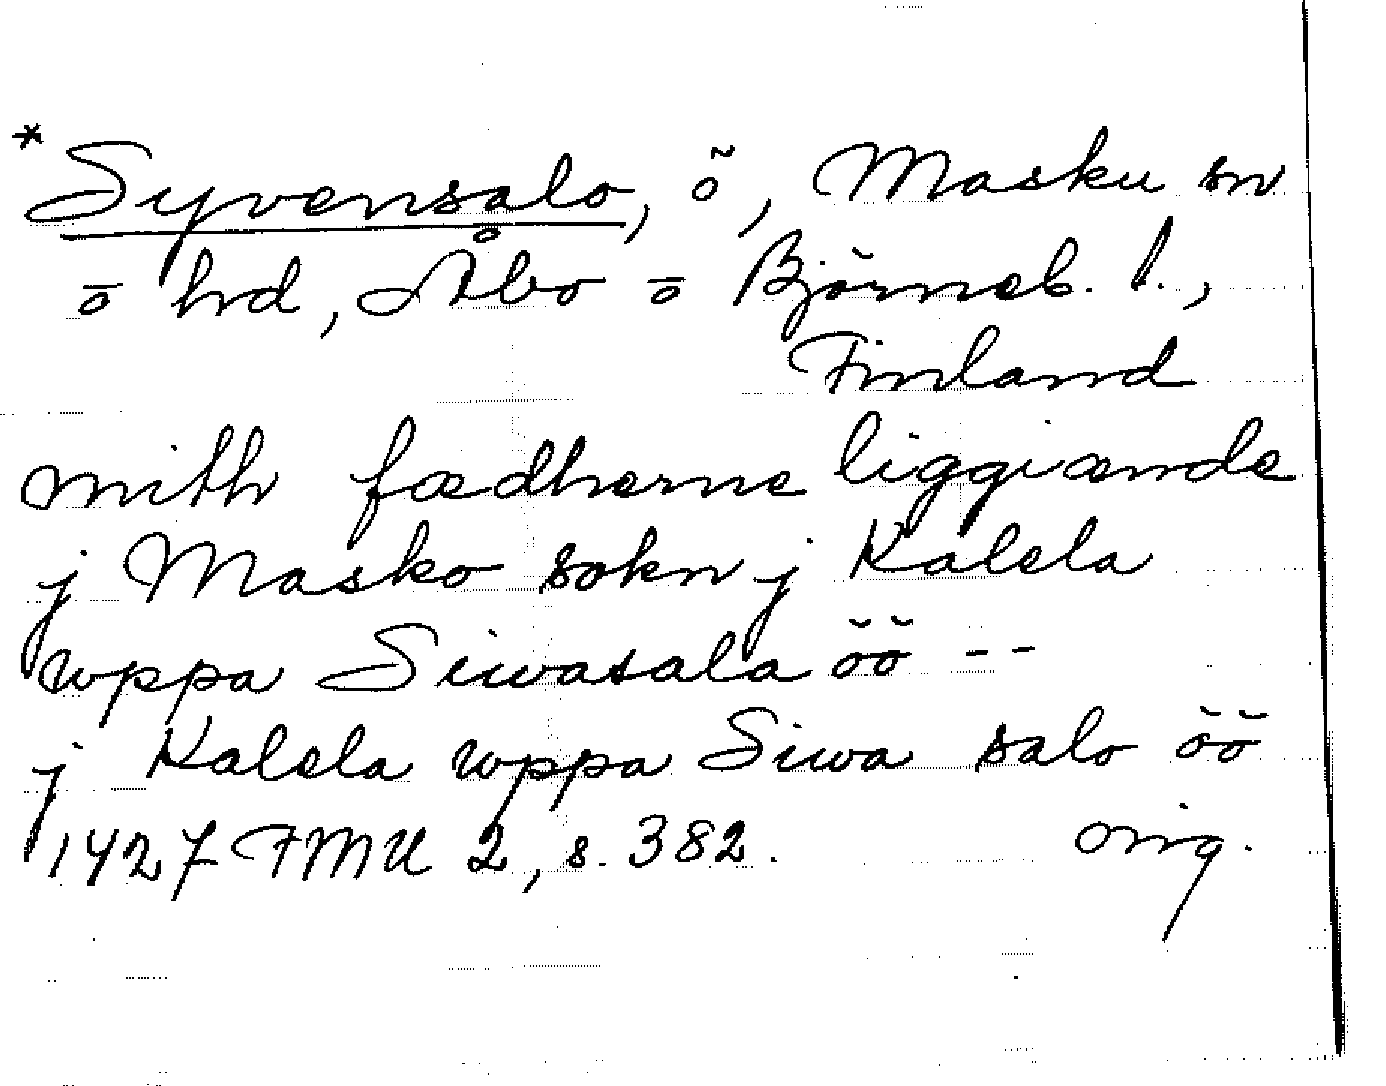 * Syvensalo, ö, Masku sn
o hd, Åbo o Björneb. l.,
Finland
mith fædherne liggiænde
j Masko sokn j Kalela
wppa Siwasala öö --
j Kalela wppa Siwa salo öö
1427 FMU 2, s. 382. orig.